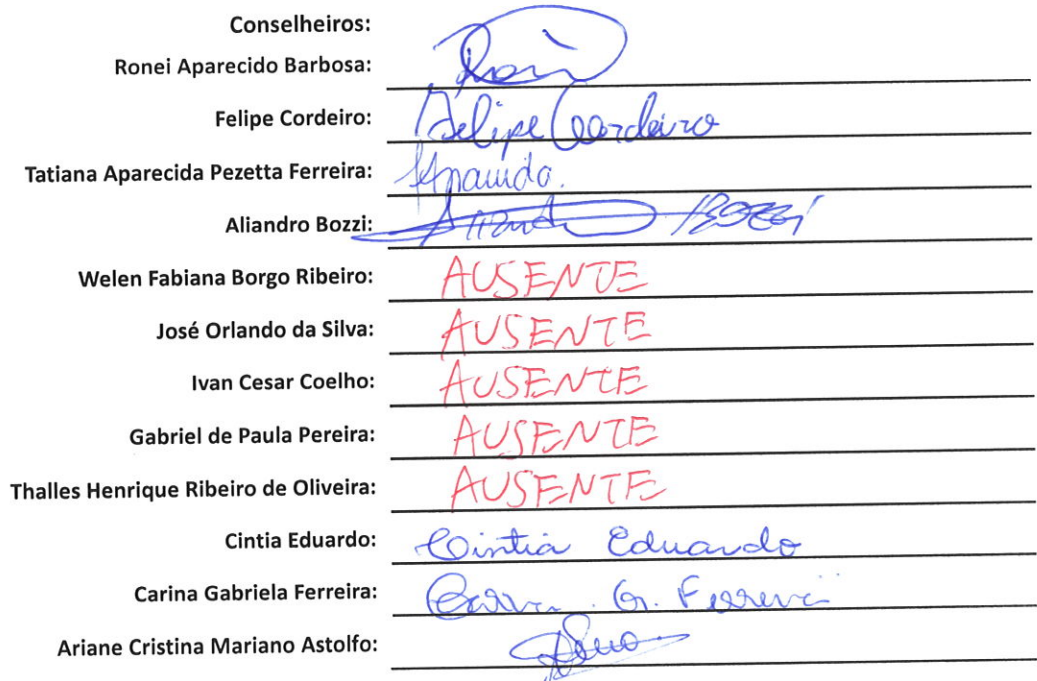 Conselheiros:
Ronei Aparecido Barbosa:
Felipe Cordeiro: Felipe Cordeiro
Tatiana Aparecida Pezetta Ferreira:
Aliandro Bozzi: Bozzi
Welen Fabiana Borgo Ribeiro: AUSENTE
José Orlando da Silva: AUSENTE
Ivan Cesar Coelho: AUSENTE
Gabriel de Paula Pereira: AUSENTE
Thalles Henrique Ribeiro de Oliveira: AUSENTE
Cintia Eduardo: Cintia Eduardo
Carina Gabriela Ferreira: Carina G. Ferreira
Ariane Cristina Mariano Astolfo: